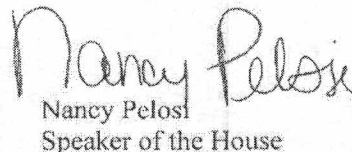 Nancy Pelosi
Nancy Pelosi
Speaker of the House